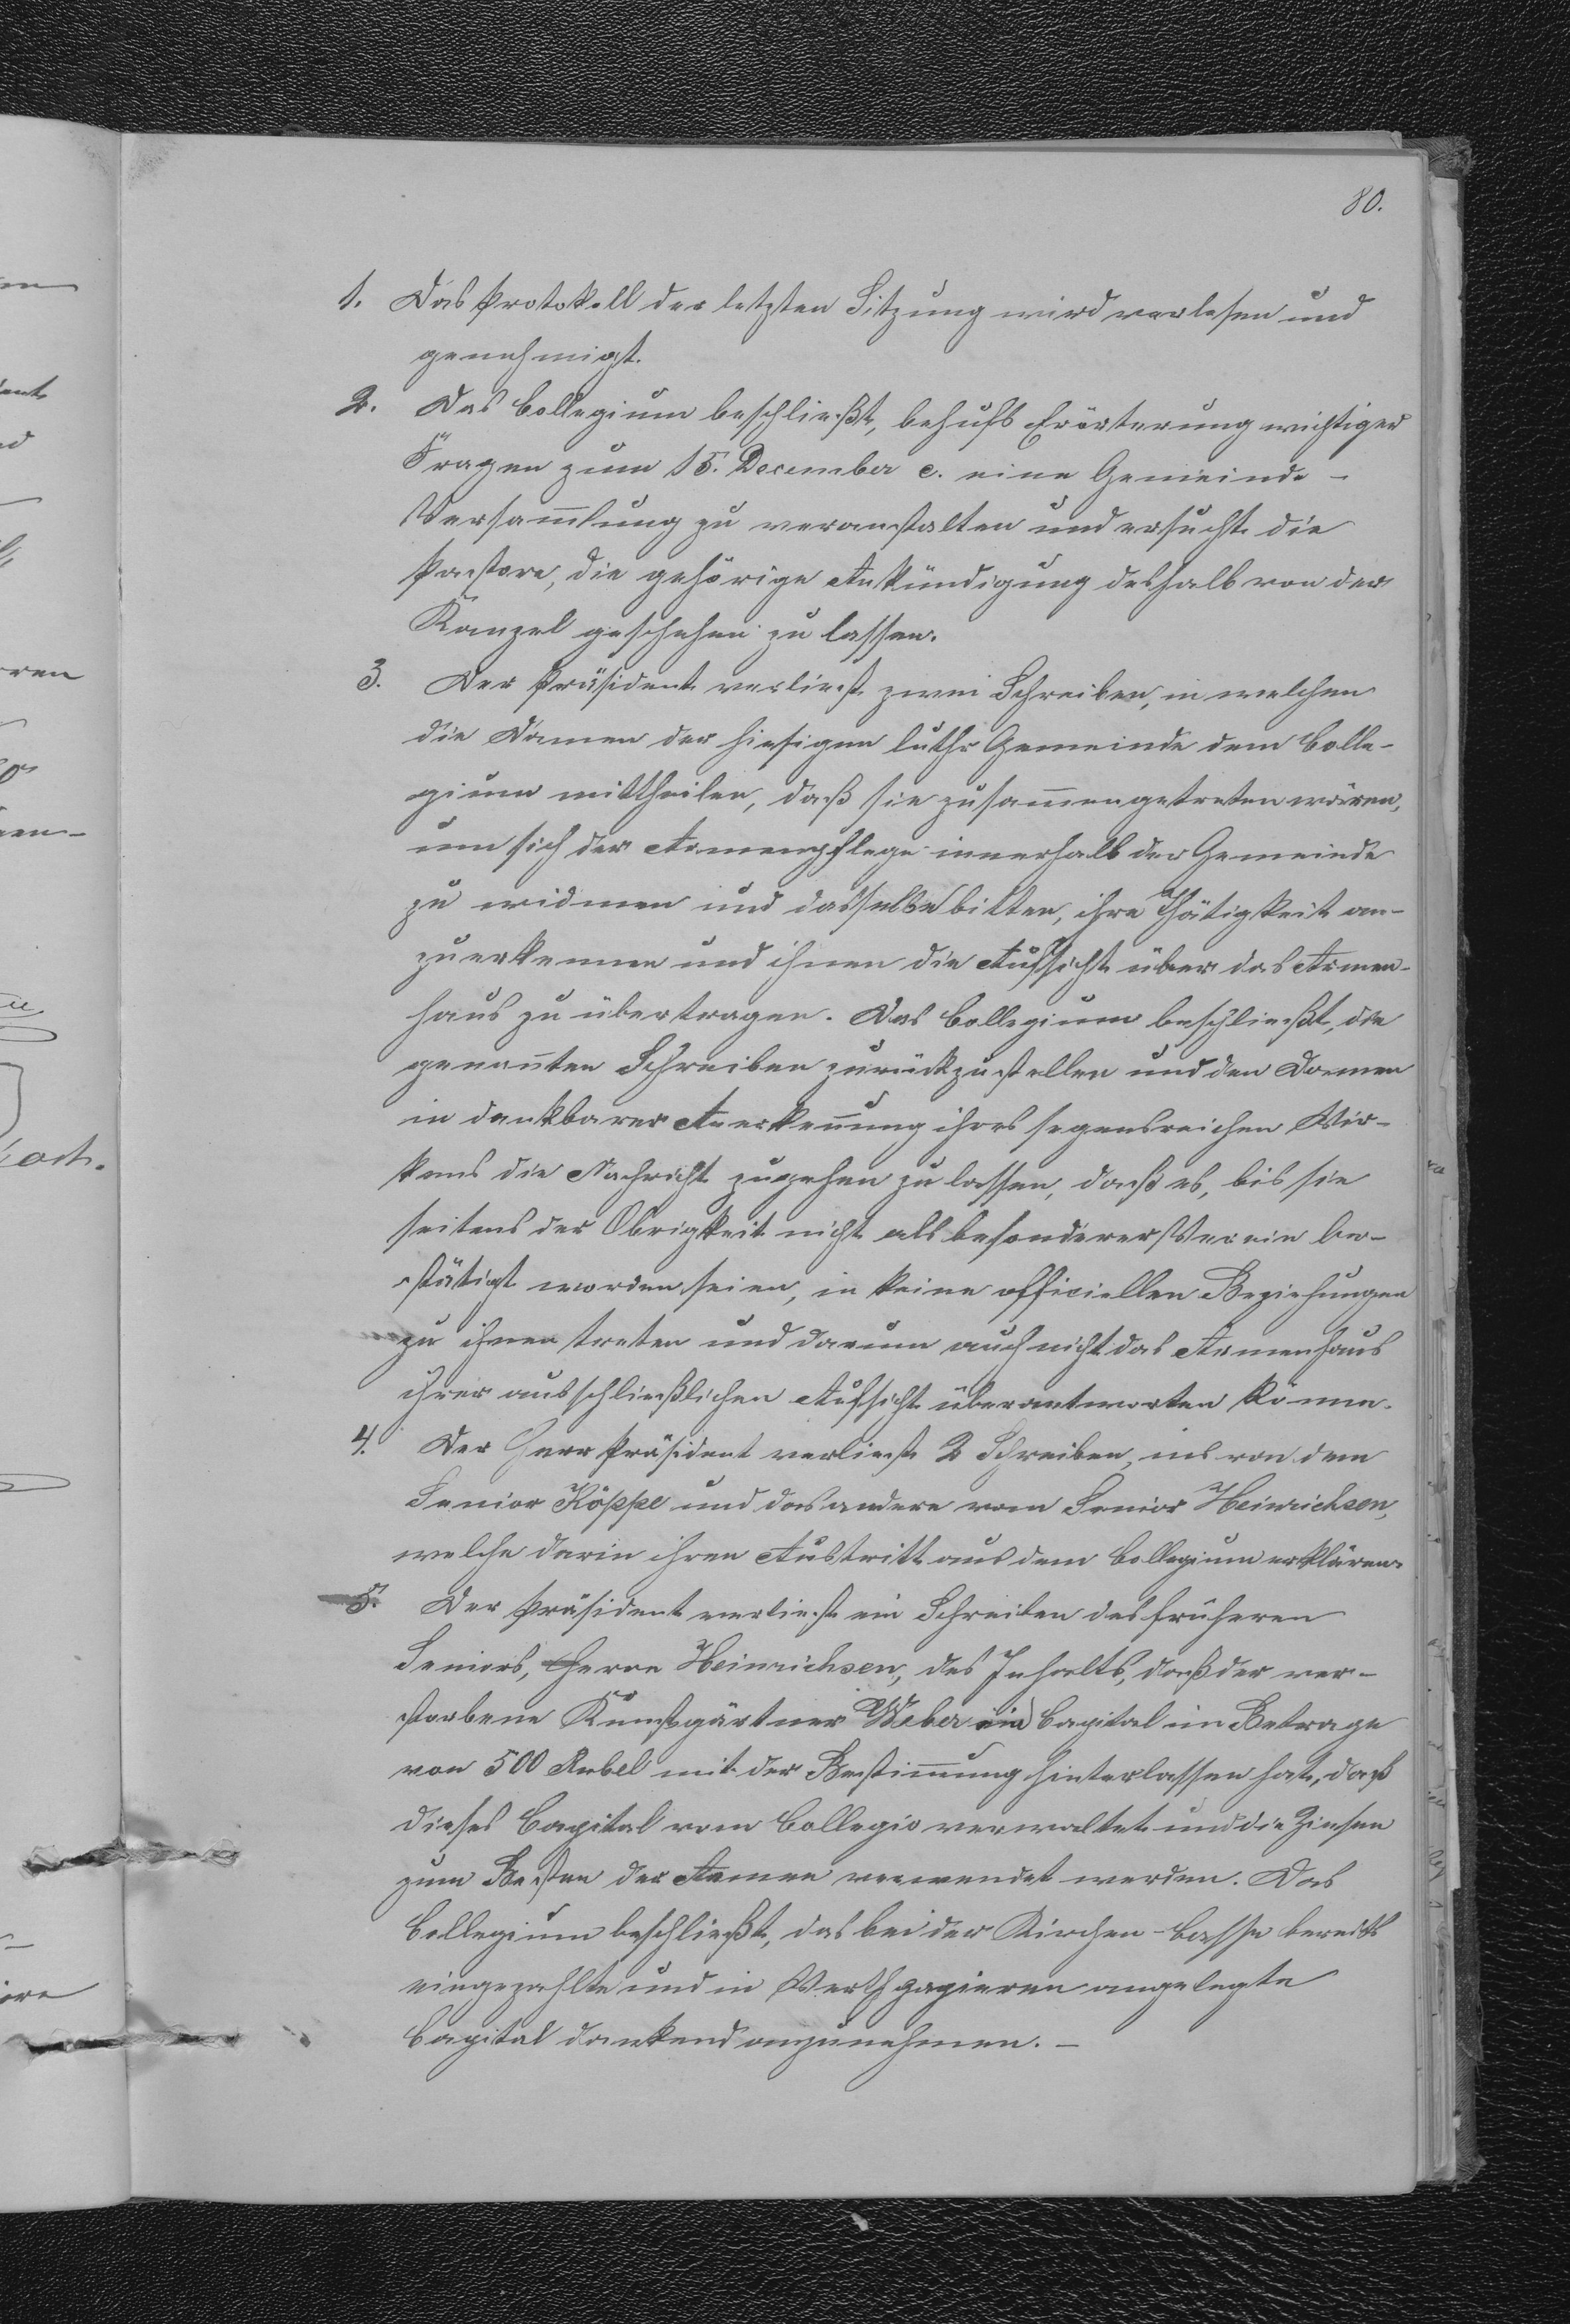 80.
1. Das Protokoll der letzten Sitzung wird verlesen und
genehmigt.
2. Das Collegium beschließt, behufs Erörterung wichtiger
Fragen zum 15. December c. eine Gemeinde-
Versam̅lung zu veranstalten und ersucht die
Pastore, die gehörige Ankündigung deshalb von der
Kanzel geschehen zu lassen.
3. Der Präsident verliest zwei Schreiben, in welchen
die Damen der hiesigen luthr Gemeinde dem Colle-
gium mittheilen, daß sie zusam̅mengetreten wären,
um sich der Armenpflege innerhalb der Gemeinde
zu widmen und dasselbe bitten, ihre Thätigkeit an-
zuerkennen und ihnen die Aufsicht über das Armen-
haus zu übertragen. Das Collegium beschließt, die
genan̅ten Schreiben zurückzustellen und den Damen
in dankbarer Anerken̅ung ihres segensreichen Wir-
kens die Nachricht zugehen zu lassen, daß es, bis sie
seitens der Obrigkeit nicht als besonderer Verein be-
stätigt worden seien, in keine officiellen Beziehungen
zu ihnen treten und darum auch nicht das Armenhaus
ihrer ausschließlichen Aufsicht überantworten könne.
4. Der Herr Präsident verliest 2 Schreiben, eins von dem
Senior Köppe und das andere vom Senior Heinrichsen,
welche darin ihren Austritt aus dem Collegium erklären.
5. Der Präsident verliest ein Schreiben des früheren
Seniors, Herrn Heinrichsen, des Inhalts, daß der ver-
storbene Kunstgärtner Weber ein Capital im Betrage
von 500 Rubel mit der Bestim̅ung hinterlassen hat, daß
dieses Capital vom Collegio verwaltet und die Zinsen
zum Besten der Armen verwendet werden. Das
Collegium beschließt, das bei der Kirchen-Casse bereits
eingezahlte und in Werthpapieren angelegte
Capital dankend anzunehmen. –